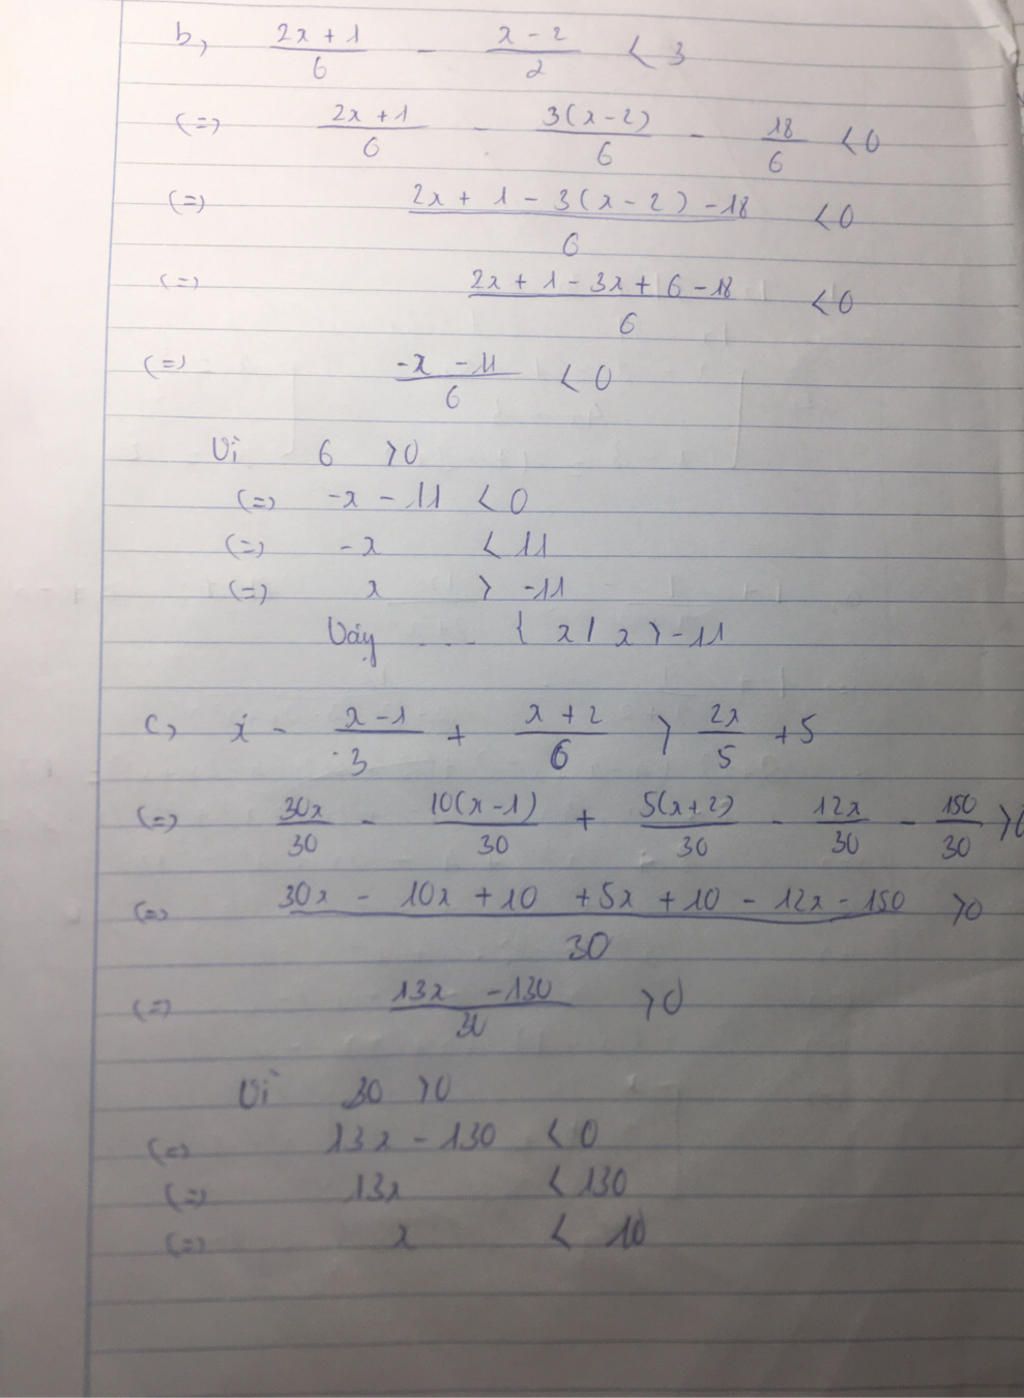 b, (2x + 1)/6 - (x - 2)/2 < 3
(=) (2x + 1)/6 - 3(x - 2)/6 - 18/6 < 0
(=) (2x + 1 - 3(x - 2) - 18)/6 < 0
(=) (2x + 1 - 3x + 6 - 18)/6 < 0
(=) (-x - 11)/6 < 0
Vì 6 > 0
(=) -x - 11 < 0
(=) -x < 11
(=) x > -11
Vậy .... { x / x > -11
c, x - (x - 1)/3 + (x + 2)/6 > 2x/5 + 5
(=) 30x/30 - 10(x - 1)/30 + 5(x + 2)/30 - 12x/30 - 150/30 > 0
(=) (30x - 10x + 10 + 5x + 10 - 12x - 150)/30 > 0
(=) (13x - 130)/30 > 0
Vì 30 > 0
(=) 13x - 130 < 0
(=) 13x < 130
(=) x < 10